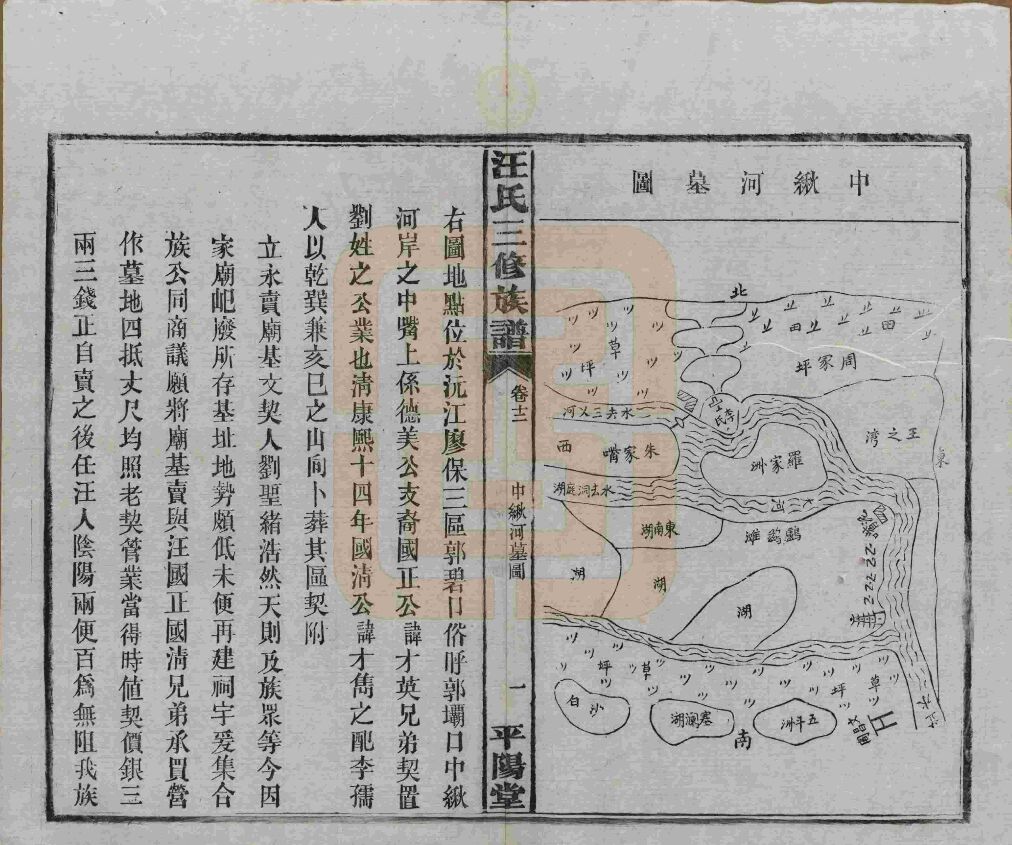 中緻河墓圖
北
草
坪
田
田
周家坪
李氏
水去三义河
西
朱家嘴
羅家洲
王之湾
東
水去洞庭湖
大河
東南湖
鸕鷀滩
湖
湖
湖
草
坪
草
坪
白沙
塞瀾湖
五斗洲
南
汪氏三修族譜
卷十二
中緻河墓圖
一
平陽堂
右圖地點位於沅江廖保三區郭碧口俗呼郭壩口中緻
河岸之中嘴上係德美公支裔國正公諱才英兄弟契置
劉姓之公業也清康熙十四年國清公諱才雋之配李孺
人以乾巽兼亥巳之山向卜葬其區契附
立永賣廟基文契人劉聖緒浩然天則及族眾等今因
家廟屺廢所存基址地勢頗低未便再建祠宇爰集合
族公同商議願將廟基賣與汪國正國清兄弟承買營
作墓地四抵丈尺均照老契管業當得時值契價銀三
兩三錢正自賣之後任汪人陰陽兩便百為無阻我族